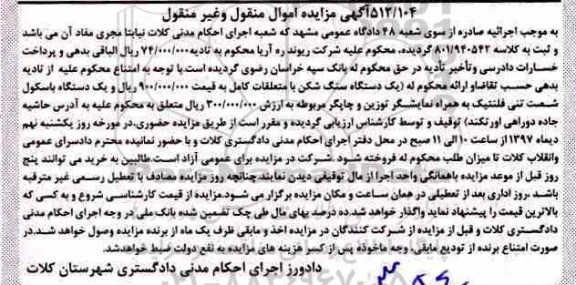 ۵۱۲/۱۰۴آگهی مزایده اموال منقول وغیر منقول
به موجب اجرائیه صادره از سوی شعبه ۴۸ دادگاه عمومی مشهد که شعبه اجرای احکام مدنی کلات نیابتا مجری مفاد آن می باشد
و ثبت به کلاسه ۸۰۱/۹۴۰۵۴۲ گردیده، محکوم علیه شرکت ریوند ره آریا محکوم به تادیه ۷۴/۰۰۰/۰۰۰ ریال الباقی بدهی و پرداخت
خسارات دادرسی وتأخیر تأدیه در حق محکوم له بانک سپه خراسان رضوی گردیده است.با توجه به امتناع محکوم علیه از تادیه
بدهی حسب تقاضاو ارائه محکوم له (یک دستگاه سنگ شکن با متعلقات کامل به قیمت ۹۰۰/۰۰۰/۰۰۰ ریال و یک دستگاه باسکول
شصت تنی فلنتیک به همراه نمایشگر توزین و چاپگر مربوطه به ارزش ۳۰۰/۰۰۰/۰۰۰ ریال متعلق به محکوم علیه به آدرس حاشیه
جاده دوراهی اورتکند) توقیف و توسط کارشناس ارزیابی گردیده و مقرر است از طریق مزایده حضوری،در مورخه روز یکشنبه نهم
دیماه ۱۳۹۷ از ساعت ۱۰ الی ۱۱ صبح در محل دفتر اجرای احکام مدنی دادگستری کلات و با حضور نمانیده محترم دادسرای عمومی
وانقلاب کلات تا میزان طلب محکوم له فروخته شود .شرکت در مزایده برای عموم آزاد است.طالبین به خرید می توانند پنج
روز قبل از موعد مزایده باهماهنگی واحد اجرا از مال توقیفی دیدن نمایند.چنانچه روز مزایده مصادف با تعطیل رسمی غیر مترقبه
باشد ،روز اداری بعد از تعطیلی در همان ساعت و مکان مزایده برگزار می شود.مزایده از قیمت کارشناسی شروع و به کسی که
بالاترین قیمت را پیشنهاد نماید واگذار خواهد شد.ده درصد بهای مال طی چک تضمین شده بانک ملی در وجه اجرای احکام مدنی
دادگستری کلات و قبل از مزایده از شرکت کنندگان در مزایده اخذ و مابقی ظرف یک ماه از برنده مزایده وصول خواهد شد.در
صورت امتناع برنده از تودیع مابقی، وجه ماخوذه پس از کسر هزینه های مزایده به نفع دولت ضبط خواهدشد.
دادورز اجرای احکام مدنی دادگستری شهرستان کلات